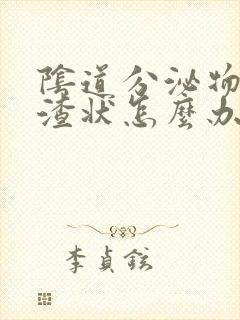 陰道分泌物
渣状怎麼办
李貞鉉